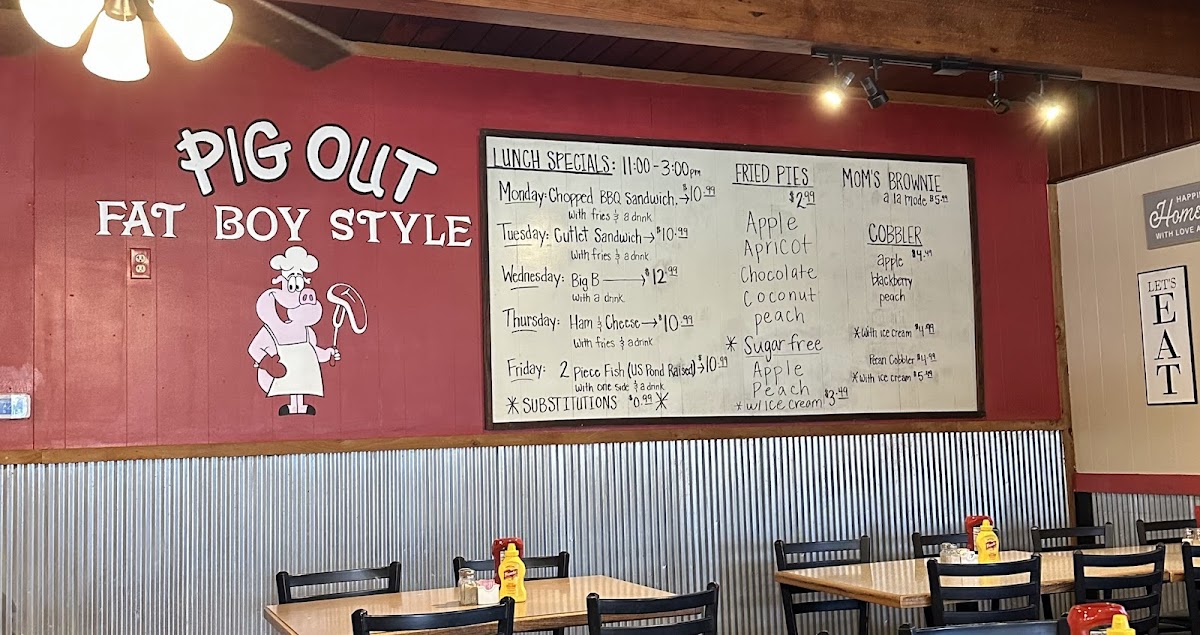 PIG OUT
FAT BOY STYLE
LUNCH SPECIALS: 11:00-3:00pm
Monday: Chopped BBQ Sandwich. → $10.99
with fries & a drink
Tuesday: Cutlet Sandwich → $10.99
with fries & a drink
Wednesday: Big B → $12.99
with a drink
Thursday: Ham & Cheese → $10.99
with fries & a drink
Friday: 2 Piece Fish (US Pond Raised) → $10.99
with one side & a drink
* SUBSTITUTIONS $0.99 *
FRIED PIES
$2.99
Apple
Apricot
Chocolate
Coconut
peach
* Sugar free
Apple
Peach
* w/ice cream $3.49
MOM'S BROWNIE
a la mode $5.49
COBBLER
apple $4.49
blackberry
peach
* with ice cream $4.99
Pecan Cobbler $4.99
* with ice cream $5.49
HAPPIN
Home
WITH LOVE A
LET'S
EAT